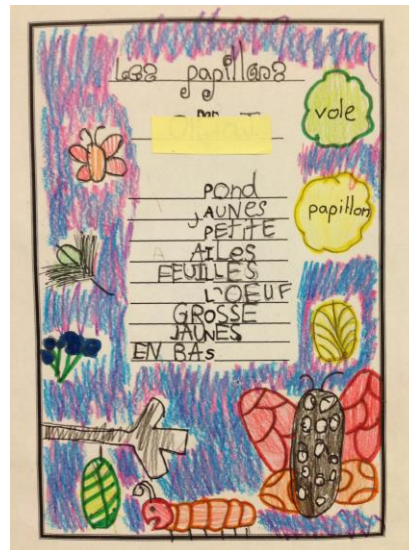 Les papillons
vole
papillon
POND
JAUNES
PETITE
AILES
FEUILLES
L'OEUF
GROSSE
JAUNES
EN BAs